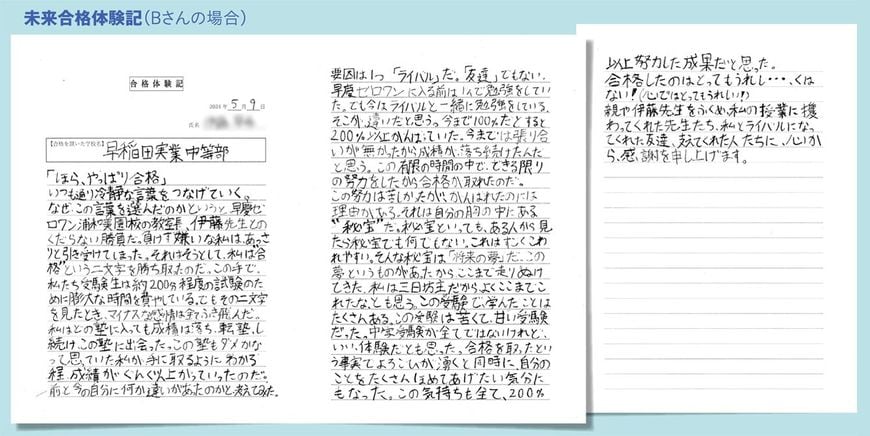 未来合格体験記(Bさんの場合)
合格体験記
2021年5月9日
氏名
【合格を頂いた学校名】
早稲田実業中等部
「ほら、やっぱり合格」
いつも通り冷静な言葉をつなげていく。
なぜ、この言葉を選んだのかというと、早慶ゼ
ロワン浦和実園校の教室長、伊藤先生との
くだらない勝負だ。負けず嫌いな私は、あっさ
りと引き受けてしまった。それはそうとして、私は“合
格”という二文字を勝ち取ったのだ。この手で、
私たち受験生は約200分程度の試験のた
めに膨大な時間を費やしている。でもその二文字
を見たとき、マイナスな感情は全てふき飛んだ。
私はどの塾に入っても成積は落ち、転塾し
続け、この塾に出会った。この塾もダメかな
って思っていた私が、手に取るようにわかる
程、成績がぐんぐん上がっていったのだ。
前と今の自分に何が違いがあったのかと、考えてみた。
要因は1つ「ライバル」だ。「友達」でもない。
早慶ゼロワンに入る前は1人で勉強をしてい
た。でも今はライバルと一緒に勉強をしている。
そこが違いだと思う。今まで100%だとすると
200%以上がんばっていた。今までは張り合
いが無かったから成積が落ち続けたんだ
と思う。この有限の時間の中で、できる限り
の努力をしたから合格が取れたのだ。
この努力は苦しかたが、がんばれたのには
理由がある。それは自分の胸の中にある
“秘宝”だ。秘宝といっても、ある人から見
たら秘宝でも何でもない。これはすごくこわ
れやすい。そんな秘宝は「将来の夢」だ。この
夢というものがあったからここまで走りぬけ
てきた。私は三日坊主だからよくここまでこ
れたな、とも思う。この受験で、学んだことは
たくさんある。この受験は苦くて、甘い受験
だった。中学受験が全てではないけれど、
いい、体験だとも思った。合格を取ったとい
う事実でよろこびが湧くと同時に、自分の
ことをたくさんほめてあげたい気分に
もなった。この気持ちも全て、200%
以上努力した成果だと思った。
合格したのはとってもうれし・・・くは
ない!(心ではとってもうれしい!)
親や伊藤先生をふくめ、私の授業に携
わってくれた先生たち、私とライバルになっ
てくれた友達、支えてくれた人たちに、心か
ら、感謝を申し上げます。